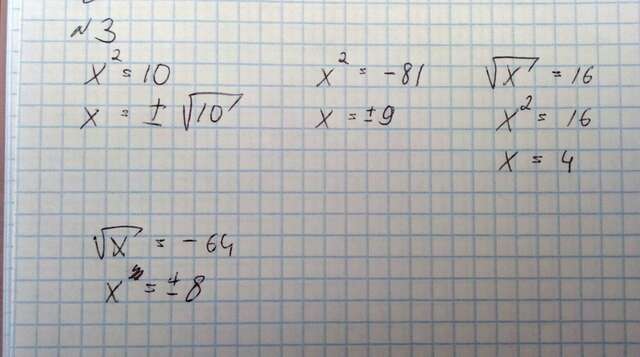 №3
x² = 10
x = ± √10
x² = -81
x = ±9
√x = 16
x² = 16
x = 4
√x = -64
x = ±8